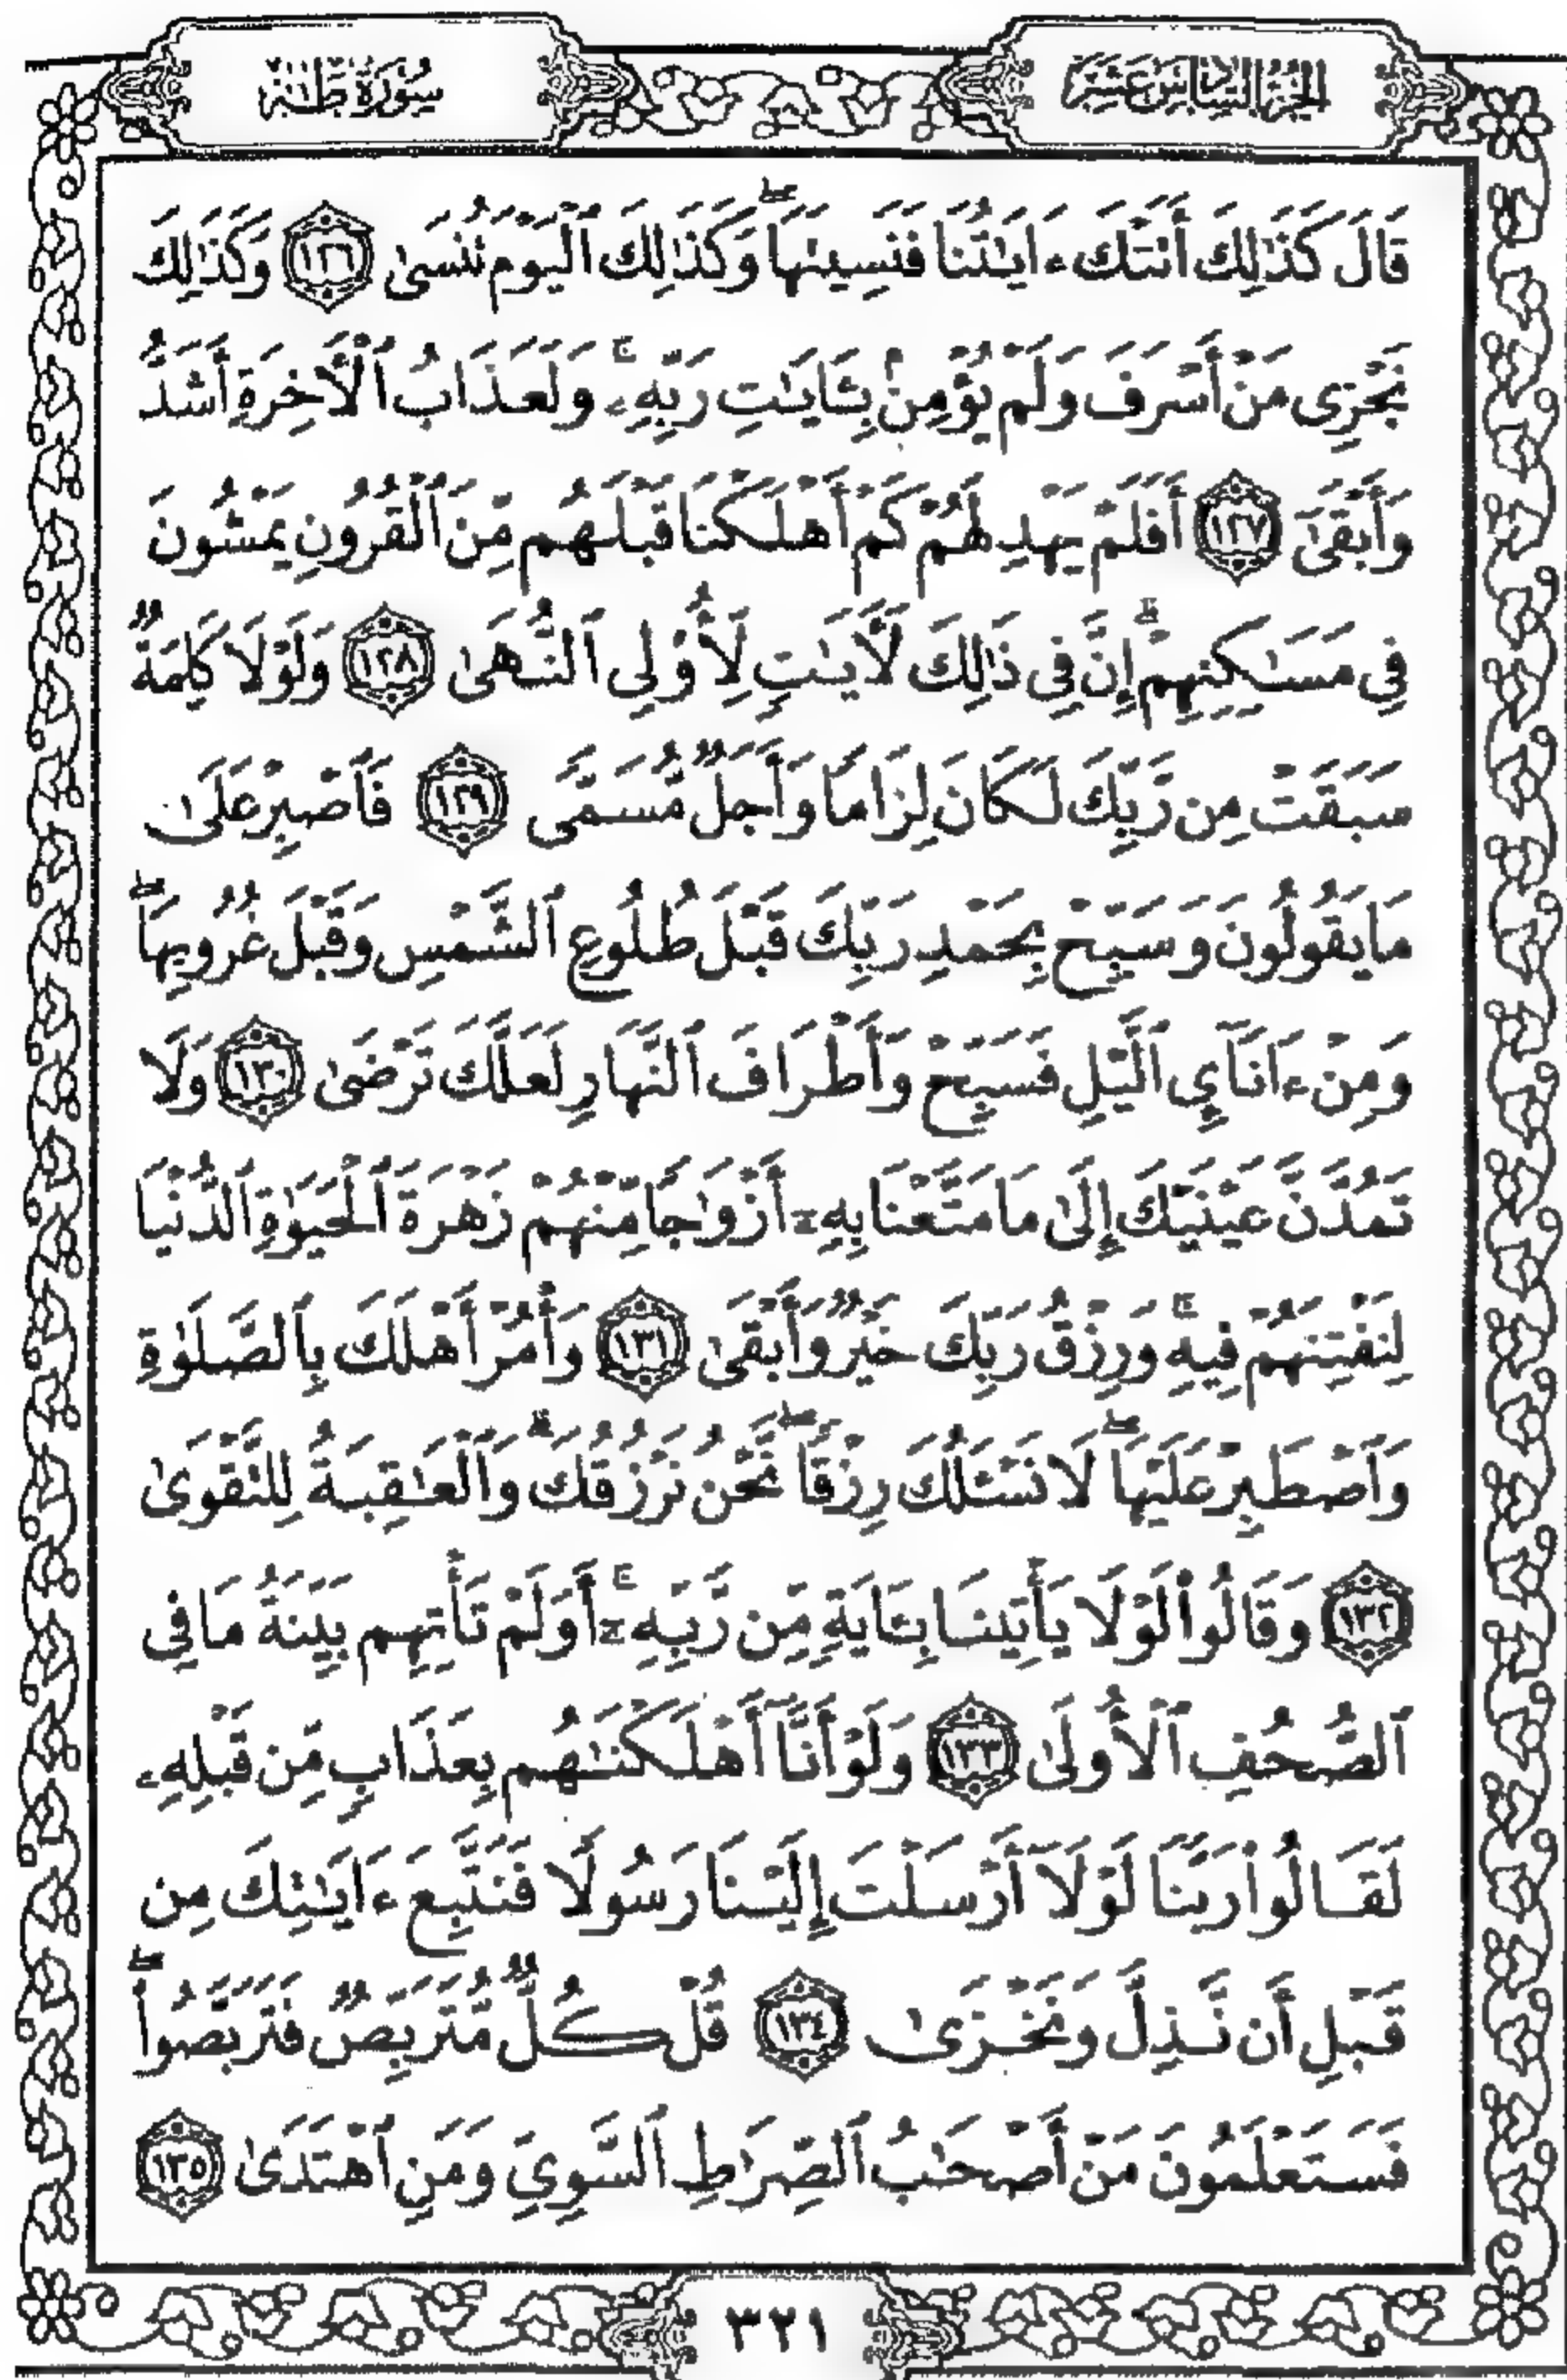 الجزء السادس عشر
سورة طه
قَالَ كَذَٰلِكَ أَتَتْكَ ءَايَٰتُنَا فَنَسِيتَهَا ۖ وَكَذَٰلِكَ ٱلْيَوْمَ تُنسَىٰ ١٢٦ وَكَذَٰلِكَ
نَجْزِى مَنْ أَسْرَفَ وَلَمْ يُؤْمِنۢ بِـَٔايَٰتِ رَبِّهِۦ ۚ وَلَعَذَابُ ٱلْأَخِرَةِ أَشَدُّ
وَأَبْقَىٰٓ ١٢٧ أَفَلَمْ يَهْدِ لَهُمْ كَمْ أَهْلَكْنَا قَبْلَهُم مِّنَ ٱلْقُرُونِ يَمْشُونَ
فِى مَسَٰكِنِهِمْ ۗ إِنَّ فِى ذَٰلِكَ لَأٓيَٰتٍ لِّأُو۟لِى ٱلنُّهَىٰ ١٢٨ وَلَوْلَا كَلِمَةٌ
سَبَقَتْ مِن رَّبِّكَ لَكَانَ لِزَامًا وَأَجَلٌ مُّسَمًّى ١٢٩ فَٱصْبِرْ عَلَىٰ
مَا يَقُولُونَ وَسَبِّحْ بِحَمْدِ رَبِّكَ قَبْلَ طُلُوعِ ٱلشَّمْسِ وَقَبْلَ غُرُوبِهَا ۖ
وَمِنْ ءَانَآئِ ٱلَّيْلِ فَسَبِّحْ وَأَطْرَافَ ٱلنَّهَارِ لَعَلَّكَ تَرْضَىٰ ١٣٠ وَلَا
تَمُدَّنَّ عَيْنَيْكَ إِلَىٰ مَا مَتَّعْنَا بِهِۦٓ أَزْوَٰجًا مِّنْهُمْ زَهْرَةَ ٱلْحَيَوٰةِ ٱلدُّنْيَا
لِنَفْتِنَهُمْ فِيهِ ۚ وَرِزْقُ رَبِّكَ خَيْرٌ وَأَبْقَىٰ ١٣١ وَأْمُرْ أَهْلَكَ بِٱلصَّلَوٰةِ
وَٱصْطَبِرْ عَلَيْهَا ۖ لَا نَسْـَٔلُكَ رِزْقًا ۖ نَّحْنُ نَرْزُقُكَ ۗ وَٱلْعَٰقِبَةُ لِلتَّقْوَىٰ
١٣٢ وَقَالُوا۟ لَوْلَا يَأْتِينَا بِـَٔايَةٍ مِّن رَّبِّهِۦٓ ۚ أَوَلَمْ تَأْتِهِم بَيِّنَةُ مَا فِى
ٱلصُّحُفِ ٱلْأُولَىٰ ١٣٣ وَلَوْ أَنَّآ أَهْلَكْنَٰهُم بِعَذَابٍ مِّن قَبْلِهِۦ
لَقَالُوا۟ رَبَّنَا لَوْلَآ أَرْسَلْتَ إِلَيْنَا رَسُولًا فَنَتَّبِعَ ءَايَٰتِكَ مِن
قَبْلِ أَن نَّذِلَّ وَنَخْزَىٰ ١٣٤ قُلْ كُلٌّ مُّتَرَبِّصٌ فَتَرَبَّصُوا۟ ۖ
فَسَتَعْلَمُونَ مَنْ أَصْحَٰبُ ٱلصِّرَٰطِ ٱلسَّوِىِّ وَمَنِ ٱهْتَدَىٰ ١٣٥
٣٢١